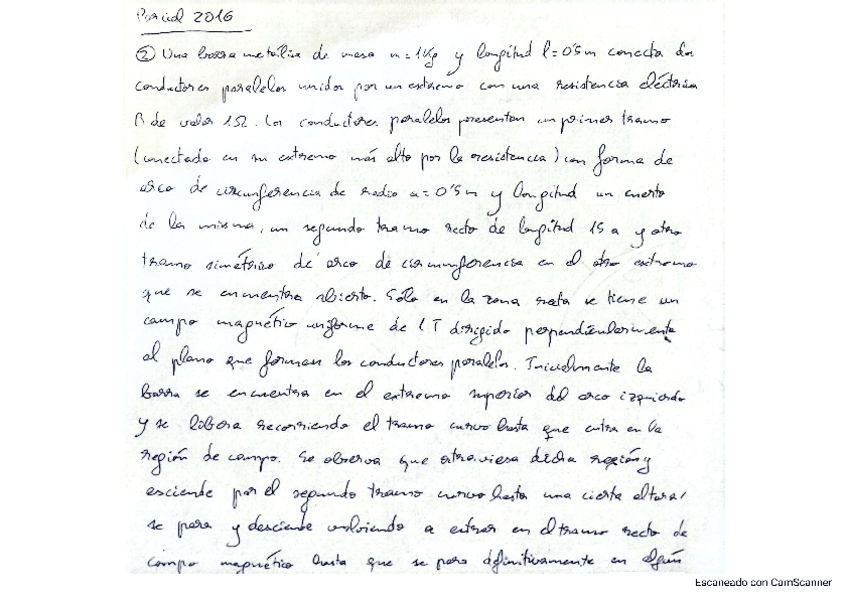 Parcial 2016
② Una barra metálica de masa m = 1 Kg y longitud l = 0'5 m conecta dos
conductores paralelos unidos por un extremo con una resistencia eléctrica
R de valor 1Ω. Los conductores paralelos presentan un primer tramo
(conectado en su extremo más alto por la resistencia) con forma de
arco de circunferencia de radio a = 0'5 m y longitud un cuarto
de la misma, un segundo tramo recto de longitud 15 a y otro
tramo simétrico de arco de circunferencia en el otro extremo
que se encuentra abierto. Sólo en la zona recta se tiene un
campo magnético uniforme de 1 T dirigido perpendicularmente
al plano que forman los conductores paralelos. Inicialmente la
barra se encuentra en el extremo superior del arco izquierdo
y se libera recorriendo el tramo curvo hasta que entra en la
región de campo. Se observa que atraviesa dicha región y
asciende por el segundo tramo curvo hasta una cierta altura,
se para y desciende volviendo a entrar en el tramo recto de
campo magnético hasta que se para definitivamente en algún
Escaneado con CamScanner